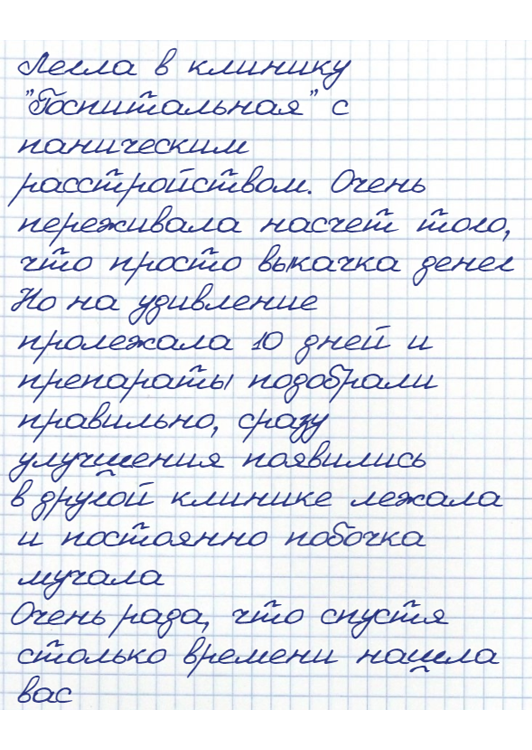 Легла в клинику
"Госпитальная" с
паническим
расстройством. Очень
переживала насчет того,
что просто выкачка денег
Но на удивление
пролежала 10 дней и
препараты подобрали
правильно, сразу
улучшения появились
в другой клинике лежала
и постоянно побочка
мучала
Очень рада, что спустя
столько времени нашла
вас